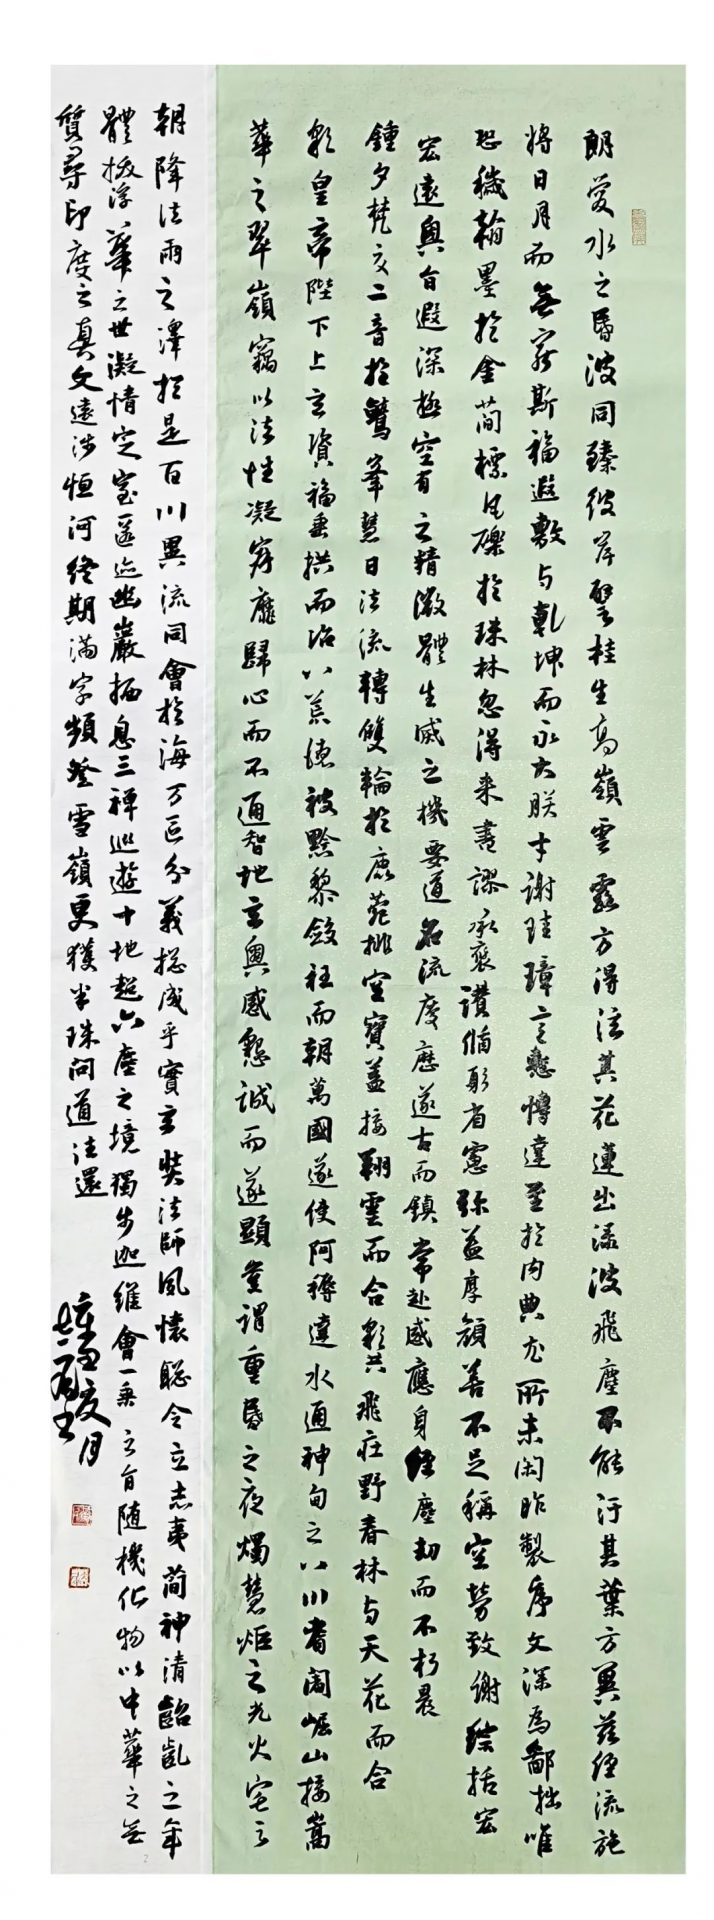 朗愛水之昏波同臻彼岸譬桂生高嶺雲露方得泫其花蓮出淥波飛塵不能汙其葉方冀茲經流施
將日月而無窮斯福遐敷与乾坤而永大朕才謝珪璋言慙博達至於内典尤所未閑昨製序文深為鄙拙唯
恐穢翰墨於金簡標瓦礫於珠林忽得來書謬承褒讚循躬省慮弥益厚顔善不足稱空勞致謝綜括宏
宏遠奧旨遐深極空有之精微體生滅之機要道名流慶歷遂古而鎮常赴感應身經塵劫而不朽晨
鍾夕梵交二音於鷲峯慧日法流轉雙輪於鹿菀排空寶蓋接翔雲而合彩共飛莊野春林与天花而合
彩皇帝陛下上玄資福垂拱而治八荒德被黔黎斂衽而朝萬國遂使阿耨達水通神甸之八川耆闍崛山接嵩
華之翠嶺竊以法性凝寂靡歸心而不通智地玄奧感懇誠而遂顯豈謂重昏之夜燭慧炬之光火宅之
朝降法雨之澤於是百川異流同會於海万區分義総成乎實玄奘法師夙懷聡令立志夷簡神清齠齔之年
體拔浮華之世凝情定室匿迹幽巖栖息三禪巡遊十地超六塵之境獨步迦維會一乘之旨随機化物以中華之無
質尋印度之真文遠涉恒河終期滿字頻登雪嶺更獲半珠問道法還